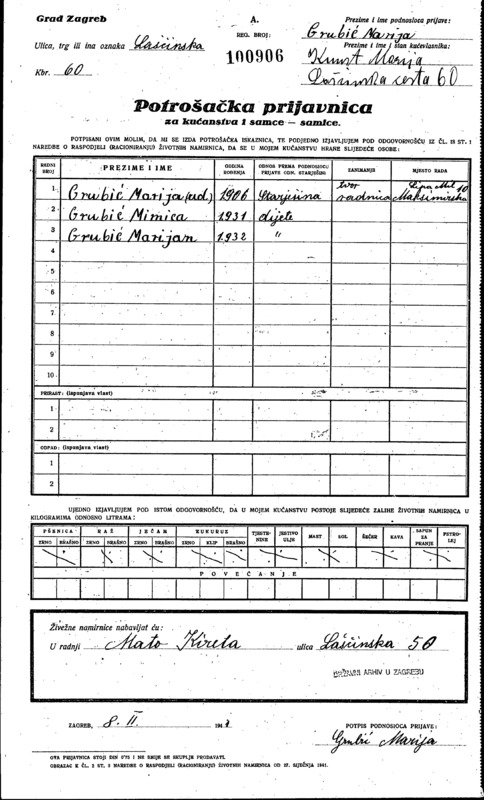 Grad Zagreb
A.
Prezime i ime podnosioca prijave:
Ulica, trg ili ina oznaka Lašćinska
REG. BROJ:
Grubić Marija
100906
Prezime i ime i stan kućevlasnika:
Kbr. 60
Kunst Marija
Lašćinska cesta 60
Potrošačka prijavnica
za kućanstva i samce – samice.
POTPISANI OVIM MOLIM, DA MI SE IZDA POTROŠAČKA ISKAZNICA, TE PODJEDNO IZJAVLJUJEM POD ODGOVORNOŠĆU IZ ČL. 18 ST. 1
NAREDBE O RASPODJELI (RACIONIRANJU) ŽIVOTNIH NAMIRNICA, DA SE U MOJEM KUĆANSTVU HRANE SLIJEDEĆE OSOBE:
REDNI BROJ PREZIME I IME GODINA ROĐENJA ODNOS PREMA PODNOSIOCU PRIJAVE ODN. STARJEŠINI ZANIMANJE MJESTO RADA
1. Grubić Marija (ud.) 1906 Starješina tvor radnica Lipa Mil 10 Maksimirska
2 Grubić Mimica 1931 dijete
3 Grubić Marijan 1932 "
4
5
6
7.
8
9.
10.
PRIRAST: (ispunjava vlast)
1
2
ODPAD: (ispunjava vlast)
1
2
UJEDNO IZJAVLJUJEM POD ISTOM ODGOVORNOŠĆU, DA U MOJEM KUĆANSTVU POSTOJE SLIJEDEĆE ZALIHE ŽIVOTNIH NAMIRNICA U
KILOGRAMIMA ODNOSNO LITRAMA:
PŠENICA RAŽ JEČAM KUKURUZ TJESTENINE JESTIVO ULJE MAST SOL ŠEĆER KAVA SAPUN ZA PRANJE PETROLEJ
ZRNO BRAŠNO ZRNO BRAŠNO ZRNO BRAŠNO ZRNO KLIP BRAŠNO
POVEĆANJE
Živežne namirnice nabavljat ću:
U radnji Mato Kireta ulica Lašćinska 50
DRŽAVNI ARHIV U ZAGREBU
ZAGREB, 8. II. 194
POTPIS PODNOSIOCA PRIJAVE:
Grubić Marija
OVA PRIJAVNICA STOJI DIN 0'75 I NE SMIJE SE SKUPLJE PRODAVATI.
OBRAZAC K ČL. 2 ST. 2 NAREDBE O RASPODJELI (RACIONIRANJU) ŽIVOTNIH NAMIRNICA OD 27. SIJEČNJA 1941.